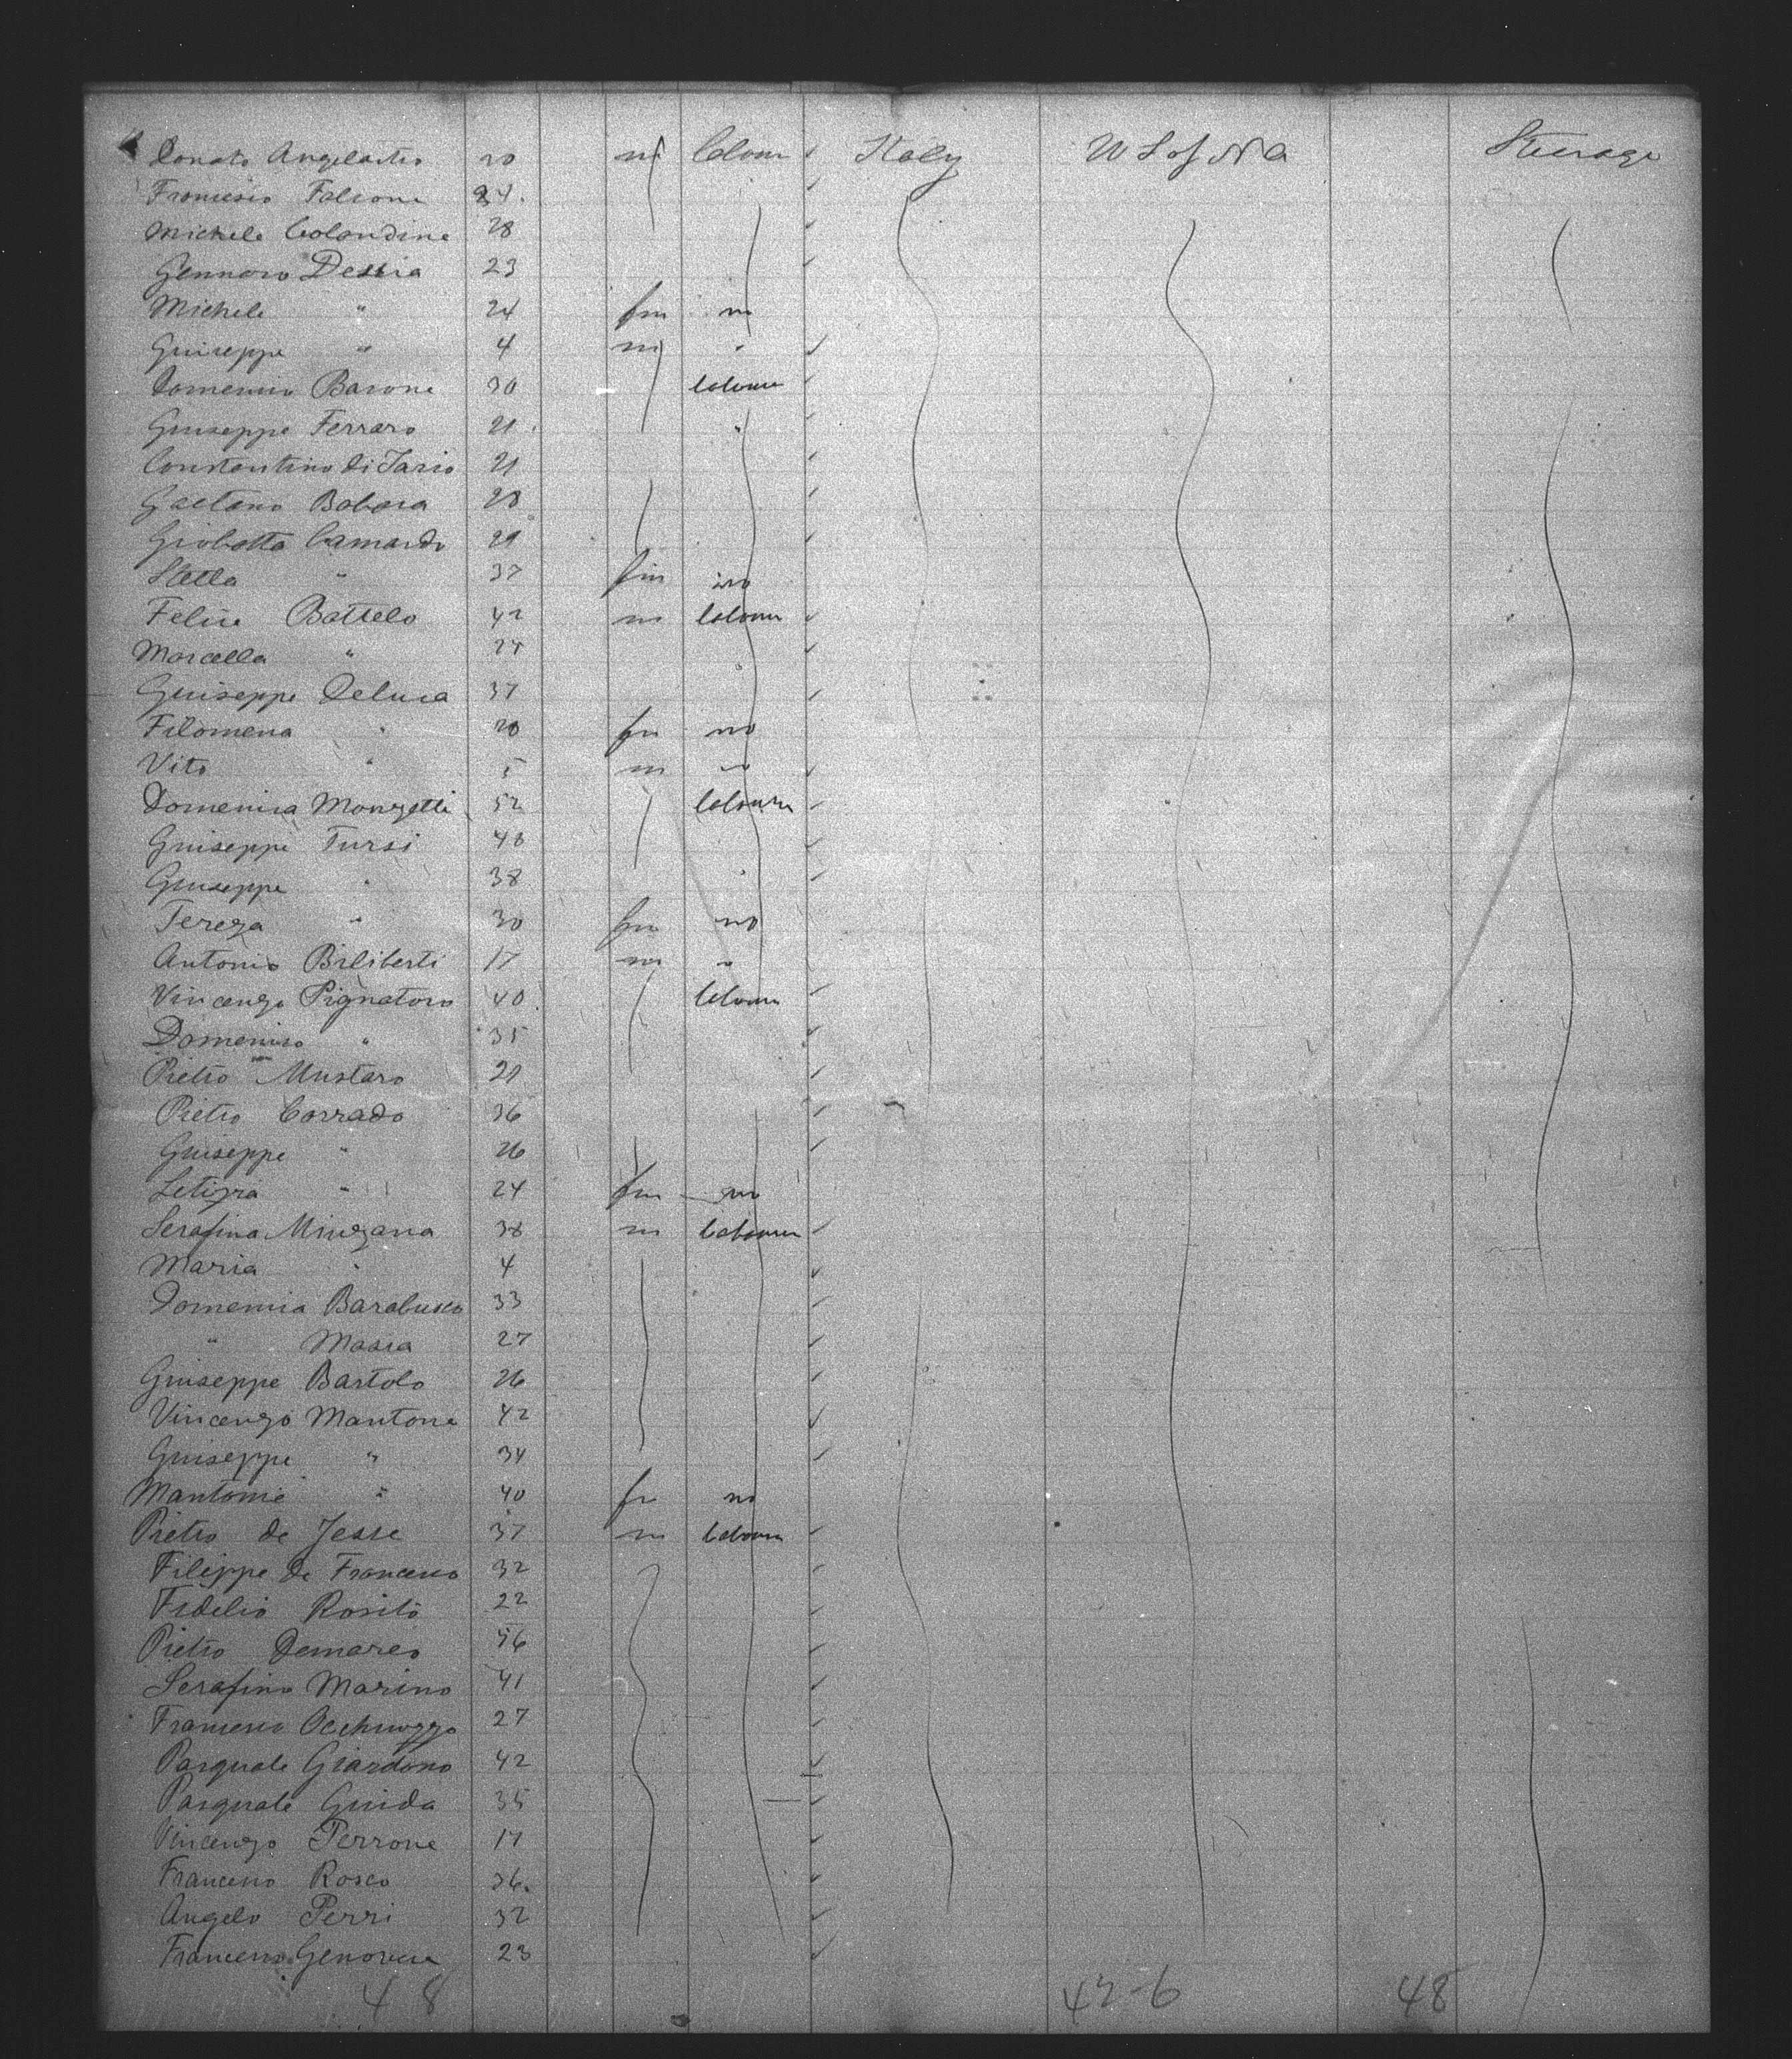 Donato Angelastro 20 m Labour Italy U S of N A Steerage
Francesco Falcone 24
Michele Colandine 28
Gennaro Dessia 23
Michele " 24 fm no
Guiseppe " 4 m "
Domenico Barone 30 Labour
Guiseppe Ferraro 21 "
Constantino di Iario 21
Gaetano Babara 28
Giobatta Camardo 29
Stella " 37 fm no
Felice Battelo 42 m Labour
Marcella " 24 "
Guiseppe Deluca 37
Filomena " 28 fm no
Vito " 5 m no
Domenica Monzetti 52 Labour
Guiseppe Tursi 48
Guiseppe " 38 "
Tereza " 30 fm no
Antonio Briliberti 17 m "
Vincenzo Pignatoro 40 Labour
Domenico " 35
Pietro Mustaro 21
Pietro Corrado 36
Guiseppe " 26
Letizia " 24 fm no
Serafina Minzana 38 m Labour
Maria " 4
Domenica Barabusco 33
" Massa 27
Guiseppe Bartolo 26
Vincenzo Mantone 42
Guiseppe " 34
Mantonie " 40 fm no
Pietro de Jesse 37 m Labour
Filippe de Francesco 32
Fidelio Rosito 22
Pietro Demarco 56
Serafino Marino 41
Francesco Occhiuzzo 27
Pasquale Giardono 42
Pasquale Guida 35
Vincenzo Perrone 17
Francesco Rosco 36
Angelo Perri 32
Francesco Genovese 23
48 42-6 48